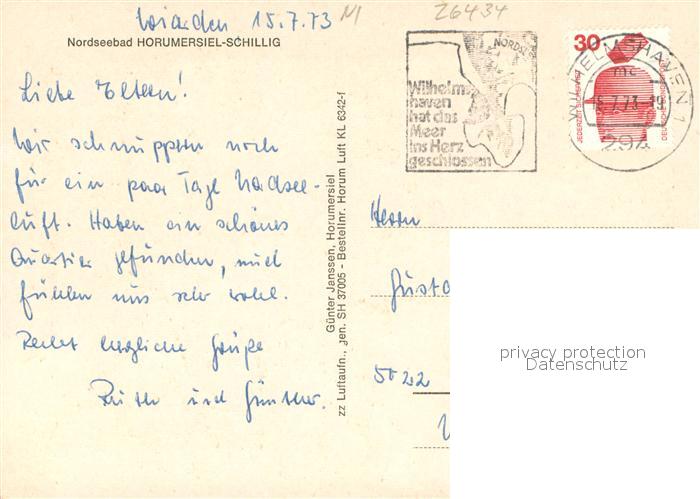 Wiarden 15.7.73
26434
Nordseebad HORUMERSIEL-SCHILLIG
Liebe Eltern!
Wir schnuppern noch
für ein paar Tage Nordsee-
luft. Haben ein schönes
Quartier gefunden, und
fühlen uns sehr wohl.
Recht herzliche Grüße
Ruth und Günther.
Günter Janssen, Horumersiel
zz Luftaufn., gen. SH 37005 - Bestellnr. Horum Luft KL 6342-f
NORDSEE
Wilhelms
haven
hat das
Meer
ins Herz
geschlossen
30
JEDERZEIT SICHERHEIT
DEUTSCHE BUNDESPOST
WILHELMSHAVEN 1
mc
15.7.73-19
294
Herrn
Gusta
5022
privacy protection
Datenschutz